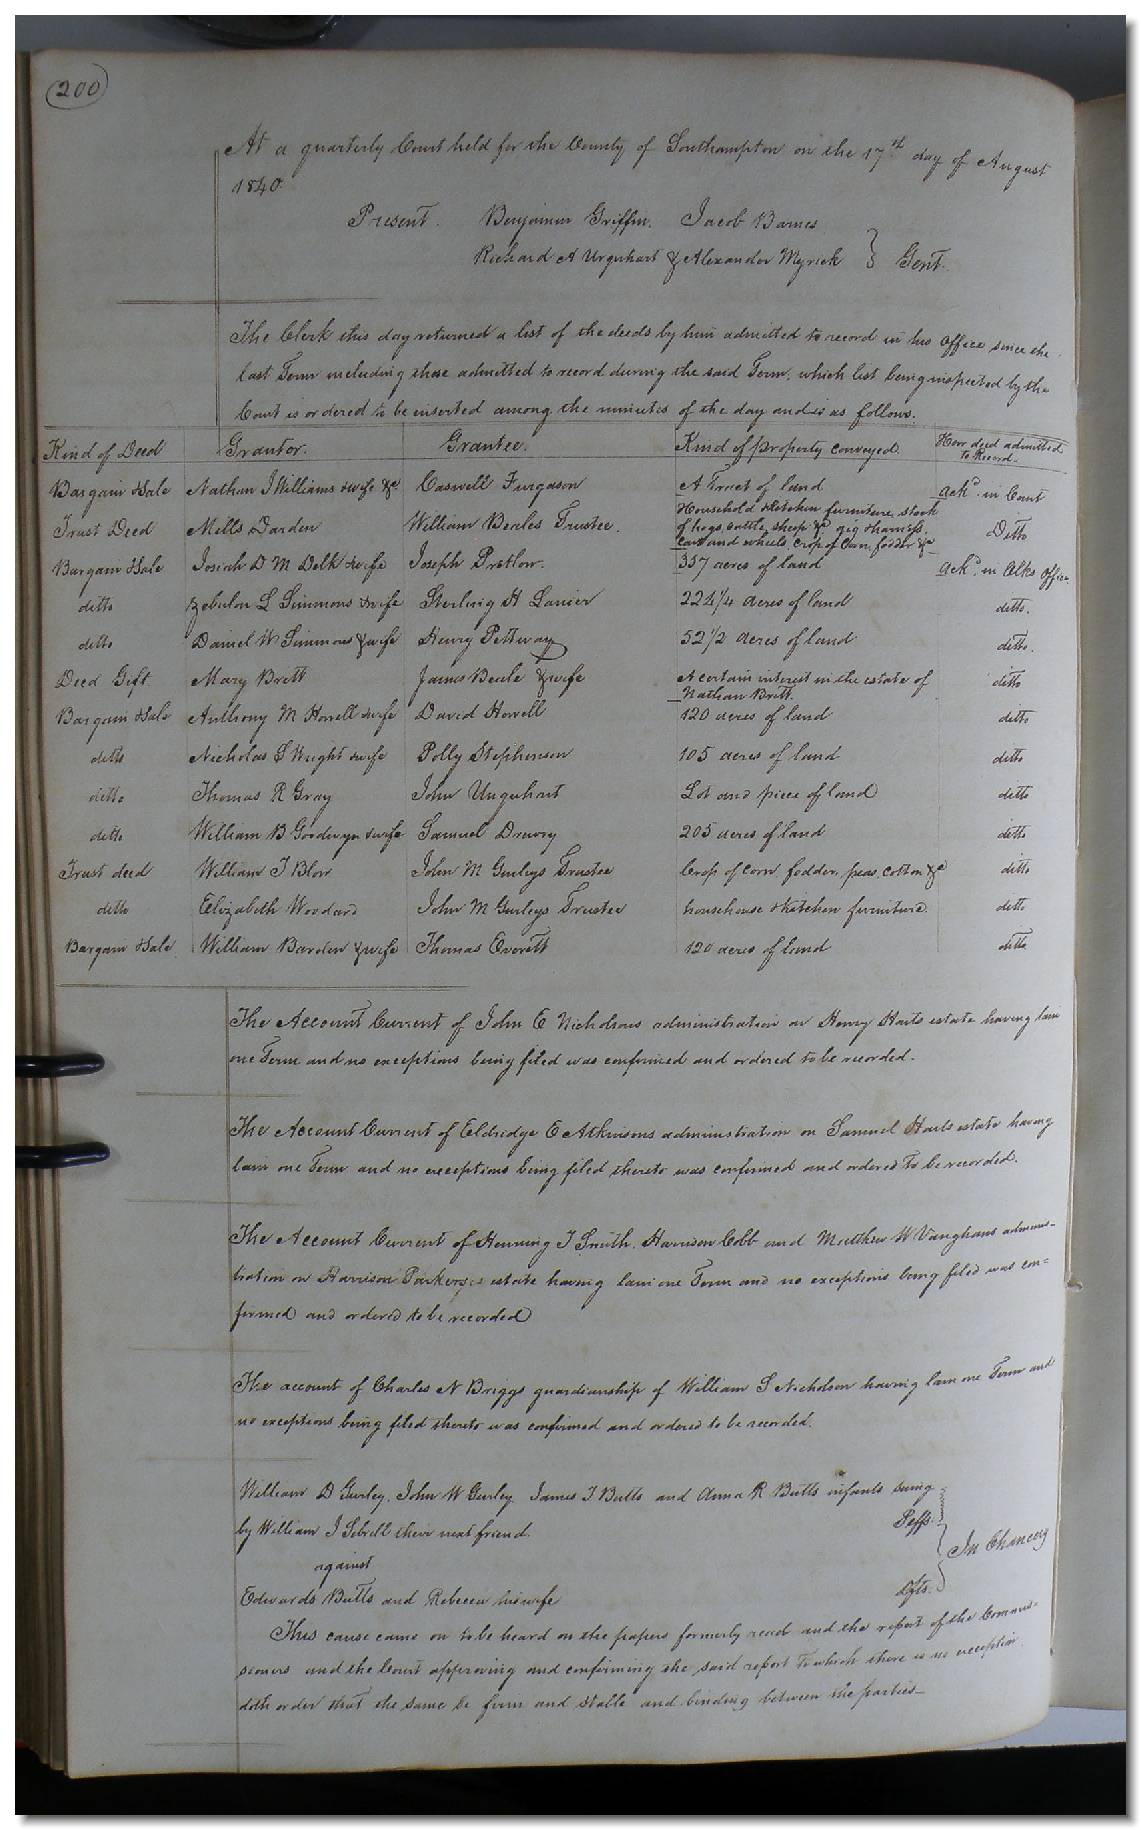 200
At a quarterly Court held for the County of Southampton on the 17th day of August
1840
Present. Benjamin Griffin. Jacob Barnes
Richard A Urquhart & Alexander Myrick } Gent.
The Clerk this day returned a list of the deeds by him admitted to record in his Office since the
last Term including those admitted to record during the said Term, which list being inspected by the
Court is ordered to be inserted among the minutes of the day and is as follows.
Kind of Deed Grantor. Grantee. Kind of property conveyed. How deed admitted
to Record.
Bargain & Sale Nathan J Williams & wife &c Caswell Furgason A Tract of land ackd. in Court
Trust Deed Mills Darden William Beales Trustee. Household & kitchen furniture, stock
of hogs, cattle, sheep &c gig & harness Ditto
cart and wheels, crop of Corn, fodder &c
Bargain & Sale Josiah D M Delk & wife Joseph Pretlow. 357 acres of land ackd. in Clks Office.
ditto Zebulon L Simmons & wife Sterling H Lanier 224 1/4 acres of land ditto.
ditto Daniel W Simmons & wife Henry Pettway 52 1/2 acres of land ditto.
Deed Gift. Mary Britt James Beale & wife A certain interest in the estate of ditto
Nathan Britt.
Bargain & Sale Anthony M Howell & wife David Howell 120 acres of land ditto
ditto Nicholas S Wright & wife Polly Stephenson 105 acres of land ditto
ditto Thomas R Gray John Urquhart Lot and piece of land ditto
ditto William B Goodwyn & wife Samuel Drewry 205 acres of land ditto
Trust deed William T Blow John M Gurleys Trustee Crop of corn, fodder, peas, cotton &c ditto
ditto Elizabeth Woodard John M Gurleys Trustee househouse & kitchen furniture. ditto
Bargain & Sale William Barden & wife Thomas Everett 120 acres of land ditto
The Account Current of John E Nicholsons administration on Henry Harts estate having lain
one Term and no exceptions being filed was confirmed and ordered to be recorded.
The Account Current of Eldridge E Atkinsons administration on Samuel Harts estate having
lain one Term and no exceptions being filed thereto was confirmed and ordered to be recorded.
The Account Current of Henning T Smith, Harrison Cobb and Matthew W Vaughans adminis-
tration on Harrison Parkers estate having lain one Term and no exceptions being filed was con=
firmed and ordered to be recorded
The account of Charles N Briggs guardianship of William S Nicholson having lain one Term and
no exceptions being filed thereto was confirmed and ordered to be recorded.
William D Gurley, John W Gurley, James T Butts and Anna R Butts infants suing
by William J Sebrell their next friend. Peffs.
against } In Chancery
Edwards Butts and Rebecca his wife dfts.
This cause came on to be heard on the papers formerly read and the report of the Commis-
sioners and the Court approving and confirming the said report to which there is no exception
doth order that the same be firm and stable and binding between the parties